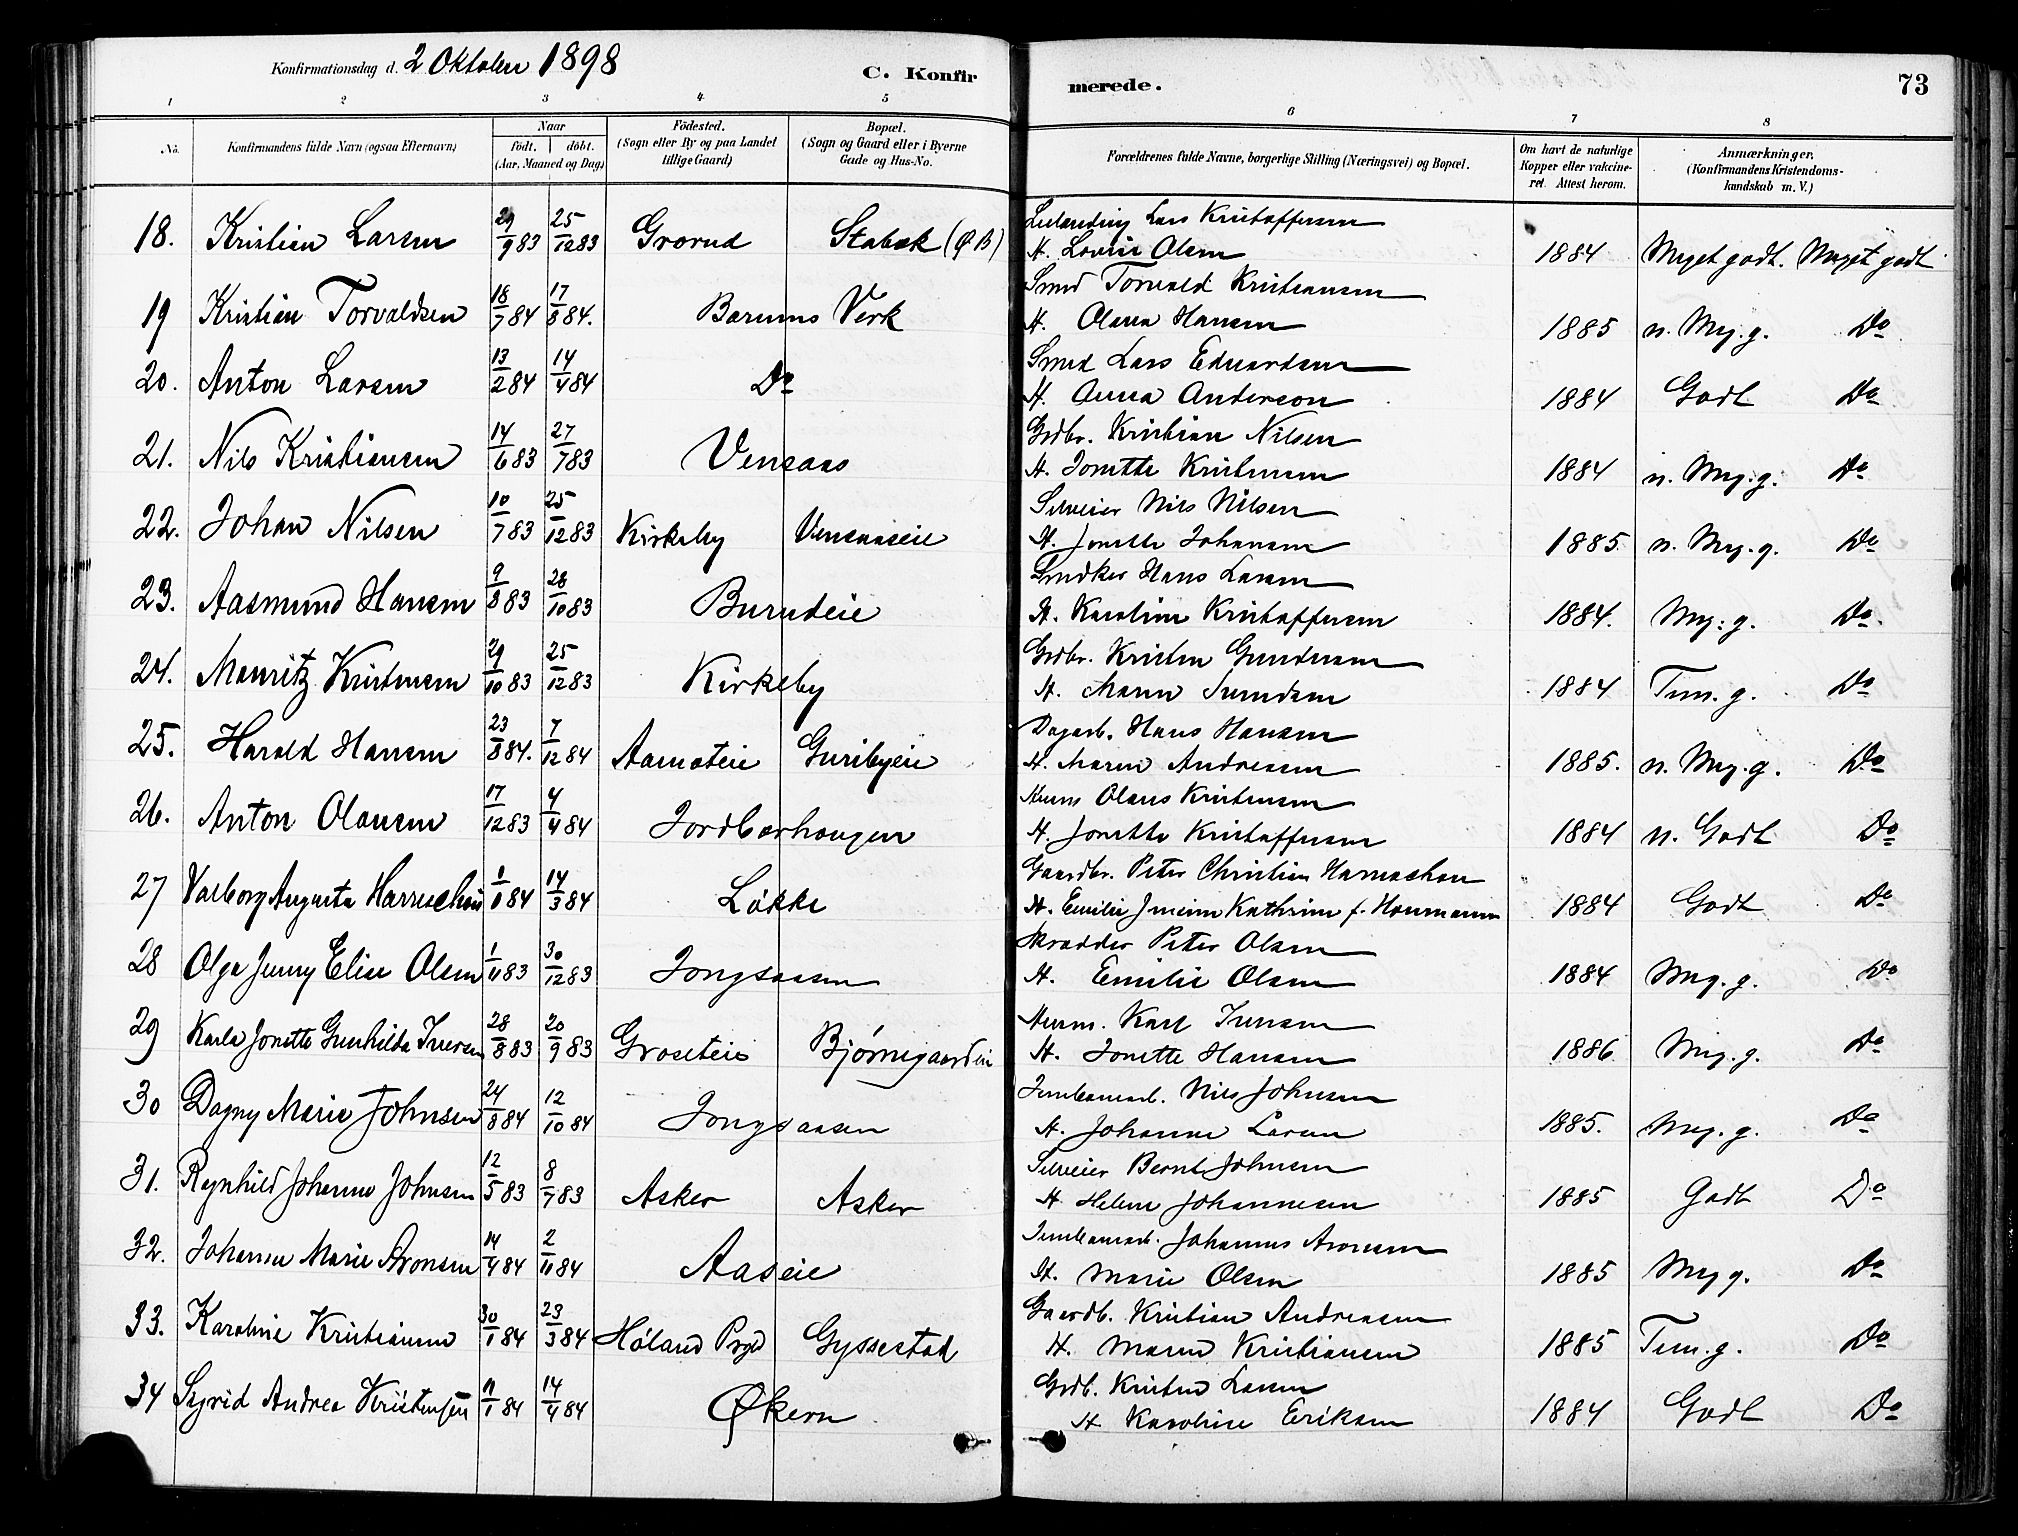 Konfirmationsdag d. 2 Oktober 1898 C. Konfir merede. 73
1 2 3 4 5 6 7 8
No. Konfirmandens fulde Navn (ogsaa Efternavn) Naar födt. döbt. (Aar, Maaned og Dag) Födested. (Sogn eller By og paa Landet tillige Gaard) Bopæl. (Sogn og Gaard eller i Byerne Gade og Hus-No. Forældrenes fulde Navne, borgerlige Stilling (Næringsvei) og Bopæl. Om havt de naturlige Kopper eller vakcineret. Attest herom. Anmærkninger. (Konfirmandens Kristendomskundskab m. V.)
Lars Kristoffersen
18. Kristian Larsen 29/9 83 25/12 83 Grorud Stabæk (ØB) H. Lovise Olsen 1884 Meget godt. Meget godt
Smed Torvald Kristiansen
19 Kristian Torvaldsen 18/7 84 17/8 84. Bærums Verk H. Olava Hansen 1885 n. Meg. g. Do
Smed Lars Eduardsen
20. Anton Larsen 13/2 84 14/4 84 Do H. Anna Anderson 1884 Godt Do
Grdbr. Kristian Nilsen
21. Nils Kristiansen 14/6 83 27/7 83 Vensaas H. Jonette Kristensen 1884 n. Meg. g. Do
Selveier Nils Nilsen
22. Johan Nilsen 10/7 83 25/12 83 Kirkeby Vensaaseie H. Jonette Johansen 1885 n. Meg. g. Do
Snedker Hans Larsen
23. Aasmund Hansen 9/8 83 28/10 83 Burudeie H. Karoline Kristoffersen 1884. Meg. g. Do.
Grdbr. Kristen Gundersen
24. Mauritz Kristensen 29/10 83 25/12 83 Kirkeby H. Maren 1884 Tem. g. Do
Dagarb. Hans Hansen
25. Harald Hansen 23/8 84. 7/12 84 Aamoteie Guribyeie H. Maren Andreasen 1885. n. Meg. g. Do
Murm Olaus Kristensen
26. Anton Olausen 17/12 83 4/4 84 Jordbærhaugen H. Jonette Kristoffersen 1884 n. Godt Do
Gaardbr. Peter Christian Harreschou
27 Valborg Augusta Harreschou 1/1 84 14/3 84 Løkke H. Emilie Kathrine f. Haumann 1884 Godt Do
Skrædder Peter Olsen
28 Olga Jenny Elise Olsen 1/11 83 30/12 83 Jongsaasen H. Emilie Olsen 1884 Meg. g. Do
Murm. Karl Iversen
29 Karla Jonette Gunhilda Iversen 28/8 83 20/9 83 Groseteie Bjørnegaardeie H. Jonette Hansen 1886 Meg. g. Do
Jernbanearb. Nils Johnsen
30 Dagny Marie Johnsen 24/8 84 12/10 84 Jongsaasen H. Johanne Larsen 1885. Meg. g. Do
Selveier Bernt Johnsen
31. Ragnhild Johanne Johnsen 12/5 83 8/7 83 Asker Asker H. Helene Johannesen 1885 Godt Do
Jernbanearb. Johannes Aronsen
32. Johanne Marie Aronsen 14/4 84 2/11 84 Aaseie H. Marie Olsen 1885 Meg g. Do
Gaardb. Kristian Andreasen
33. Karoline Kristiansen 30/1 84 23/3 84 Høland Prgld Gyssestad H. Maren Kristiansen 1885 Tem. g. Do
Grdb. Kristen Larsen
34 Sigrid Andrea Kristensen 11/1 84 14/4 84 Økern H. Karoline Eriksen 1884 Godt Do